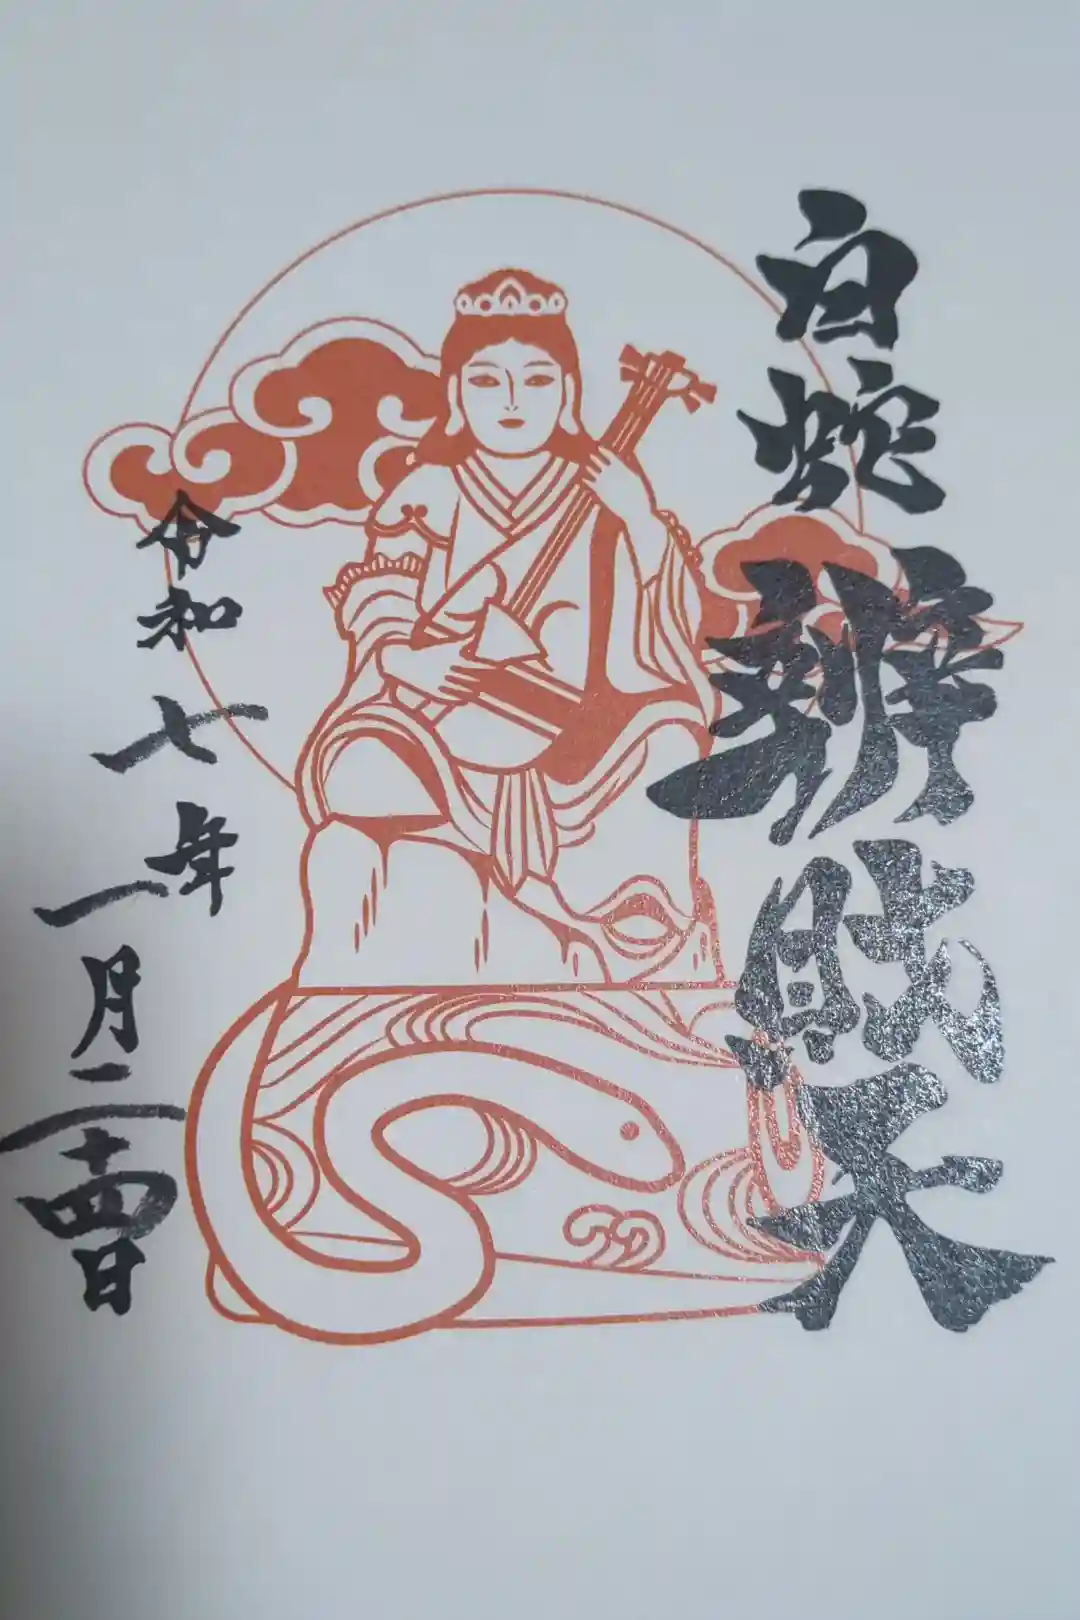 白蛇辨財天
令和七年一月二十四日